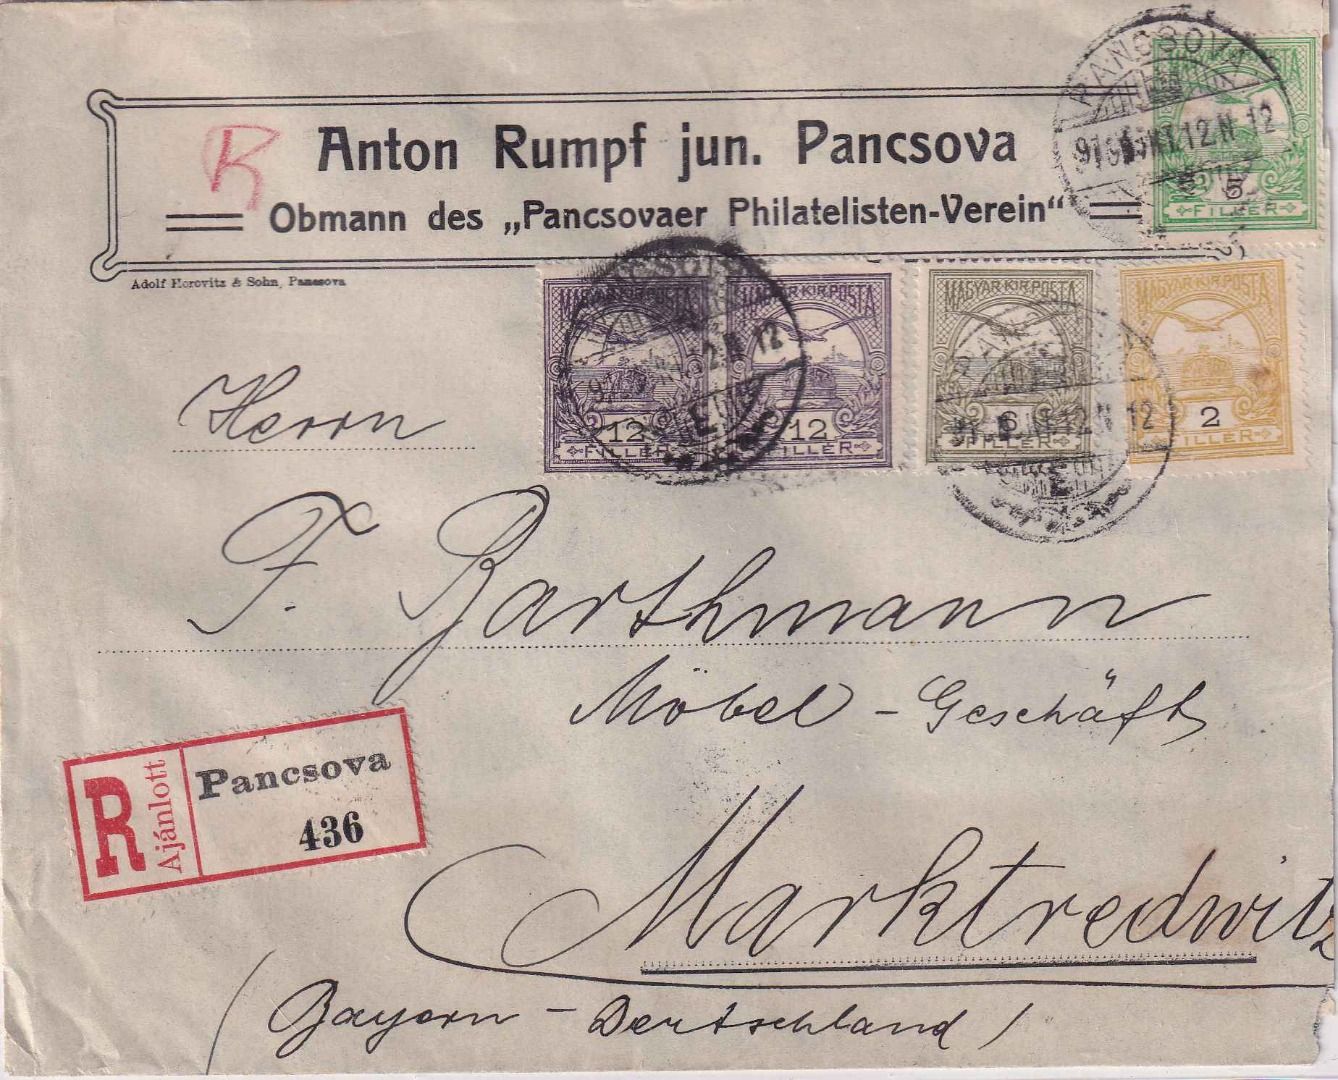 Anton Rumpf jun. Pancsova
Obmann des „Pancsovaer Philatelisten-Verein“
Adolf Horovitz & Sohn, Pancsova
R
PANCSOVA
5
FILLÉR
MAGYAR KIR. POSTA
12
FILLÉR
MAGYAR KIR. POSTA
12
FILLÉR
MAGYAR KIR. POSTA
6
FILLÉR
MAGYAR KIR. POSTA
2
FILLÉR
Herrn
F. Barthmann
Möbel - Geschäft
R Ajánlott
Pancsova
436
Marktredwitz
(Bayern - Deutschland)